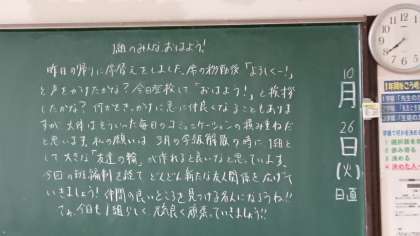 1組のみんなおはよう!
昨日の帰りに席替えをしました。席の移動後「よろしくー!」
と声をかけたかな?今日登校して「おはよう!」と挨拶
したかな?何かできっかけに急に仲良くなることもあります
が、大体はそういった毎日のコミュニケーションの積み重ねだ
と思います。私の願いは、3月の学級解散の時に1組と
して大きな「友達の輪」が作れると良いなと思っています。
今回の班編制を経て、どんどん新たな友人関係を広げて
いきましょう!仲間の良いところを見つける名人になろうね!!
では、今日も1組らしく元気良く頑張っていきましょう!!
10
月
26
日
(火)
日直